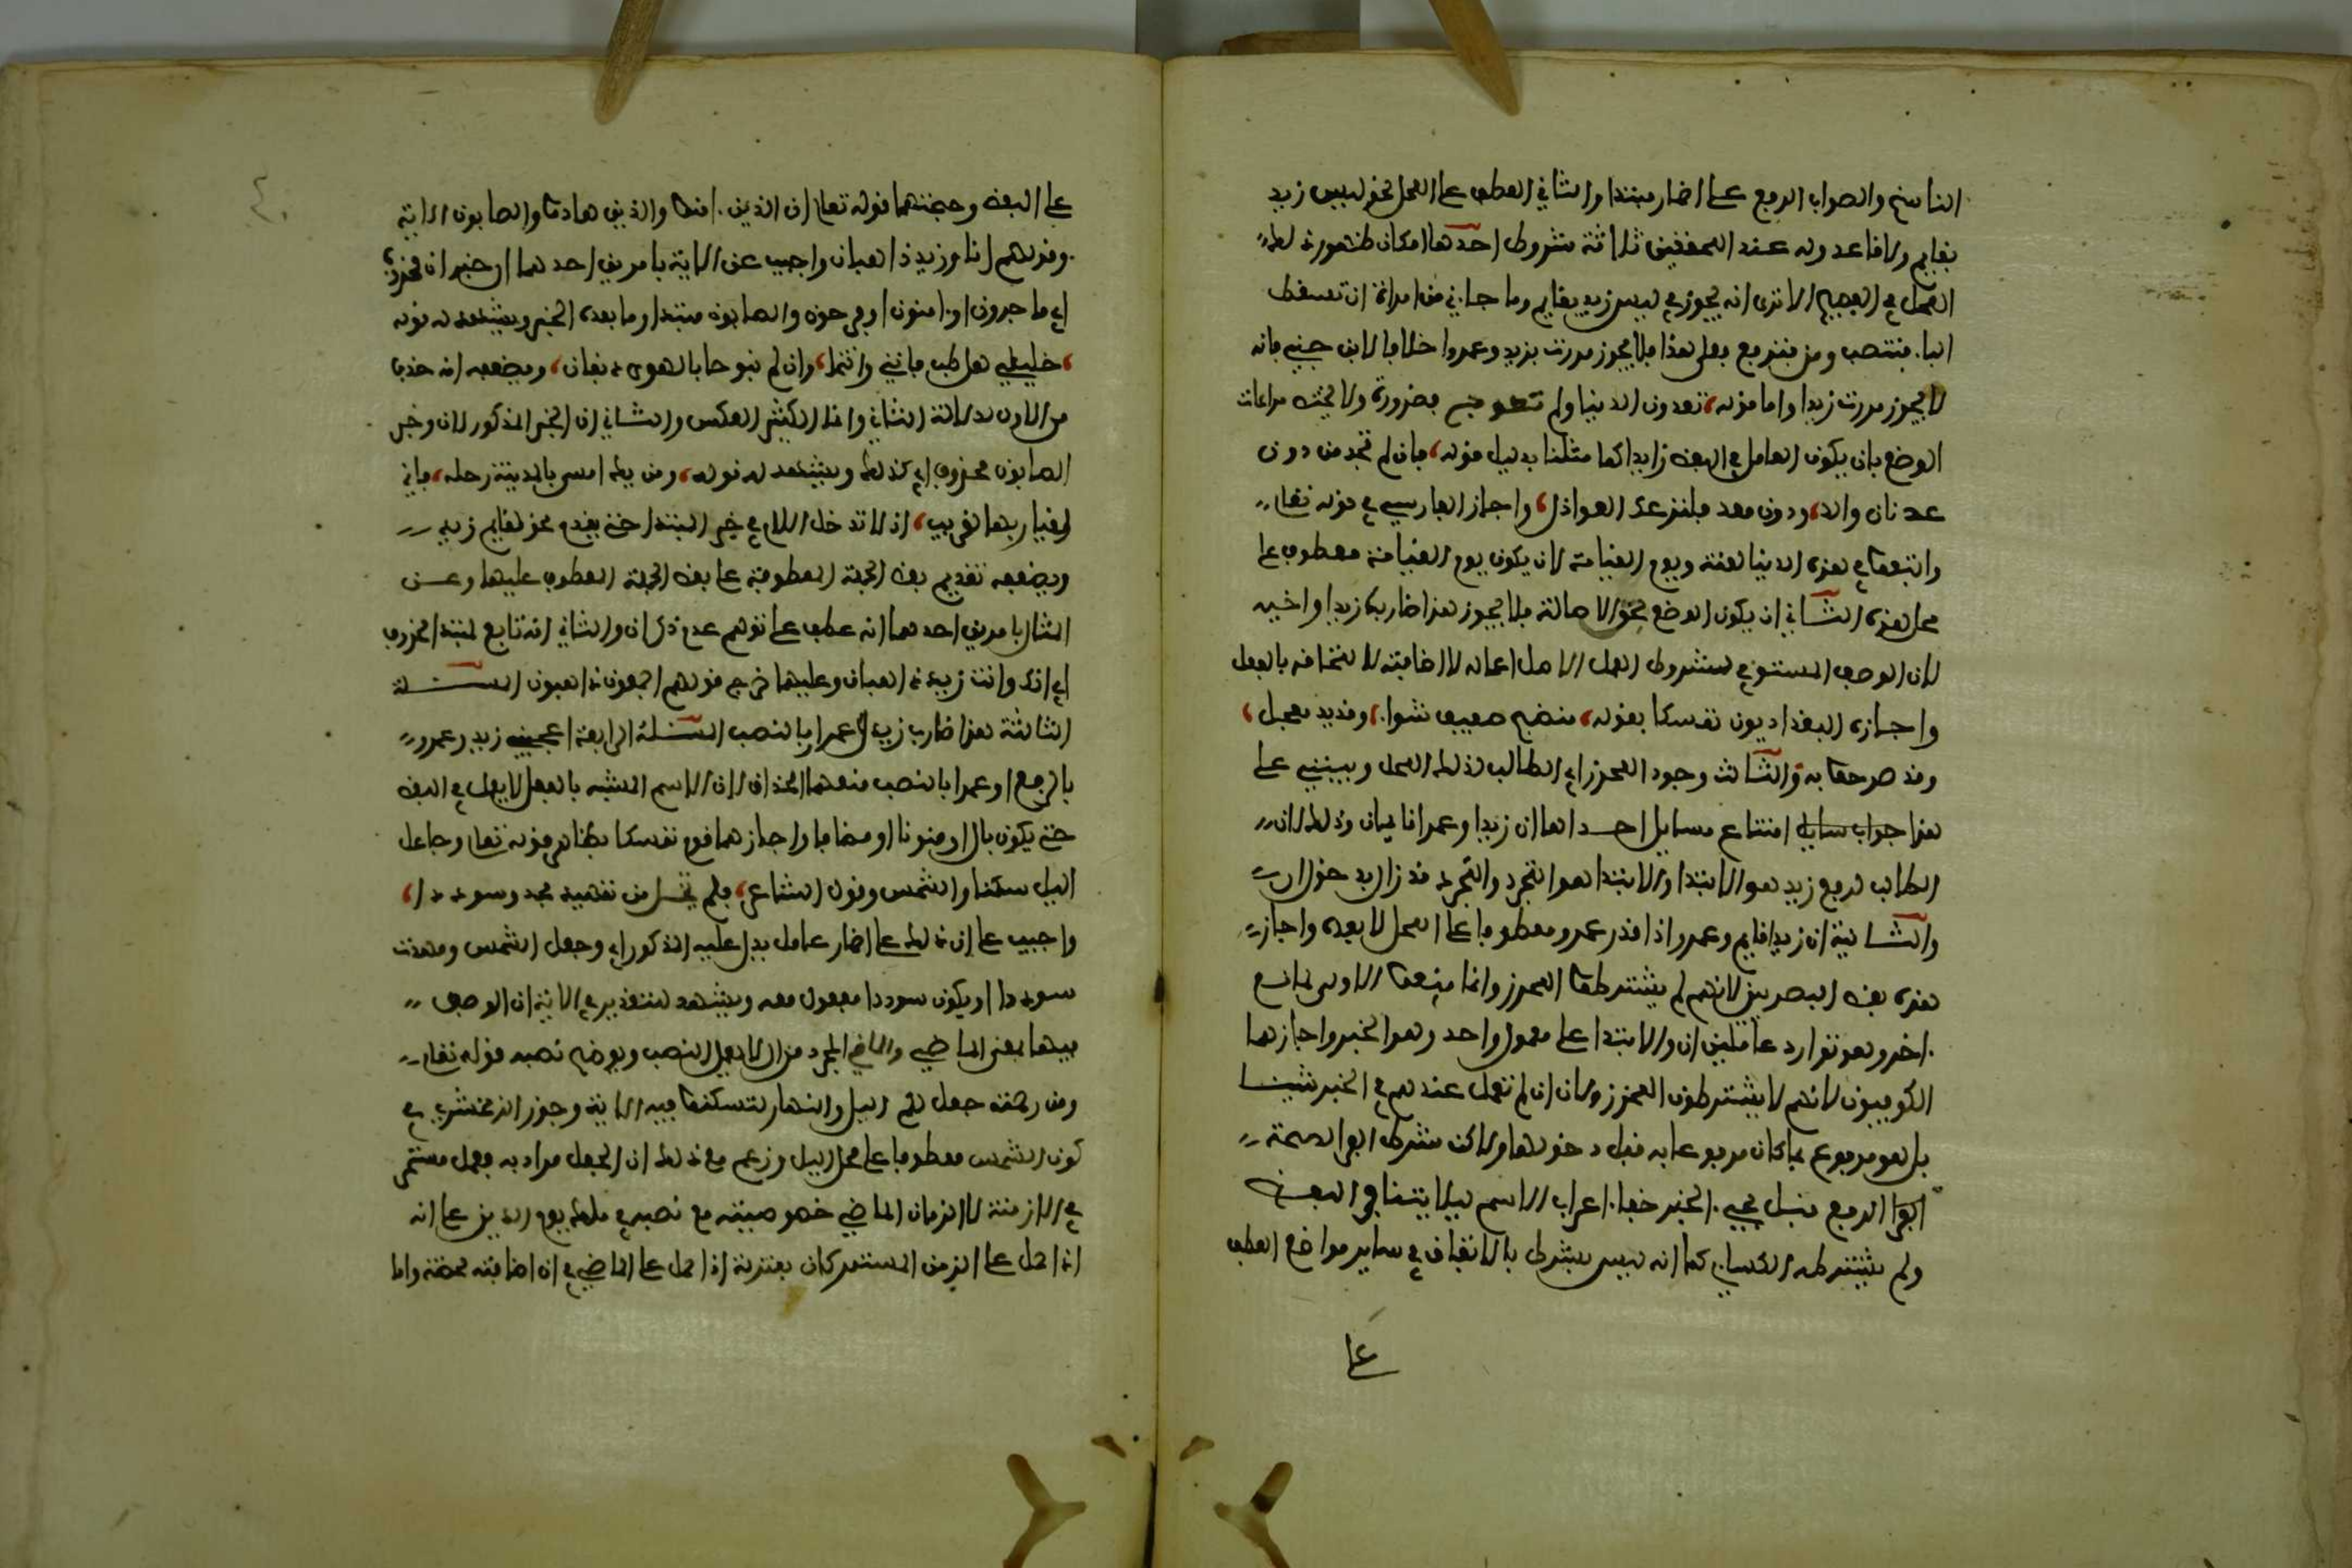 الناسخ والصواب الرفع على اضمار مبتدا والثاني العطف على المحل نحو ليس زيد
بقايم ولا قاعد وله عند المحققين ثلاثة شروط احدها امكان ظهور ذلك
المحل في الفصيح الا ترى انه يجوز في ليس زيد بقايم وما جاني من امراة ان تسقط
البا فتنصب ومن فترفع فعلى هذا فلا يجوز مررت بزيد وعمروا خلافا لابن جني فانه
لا يجوز مررت زيدا واما قوله، تمرون الديار ولم تعوجوا فضرورة ولا يختص مراعات
الوضع بان يكون العامل في اللفظ زايدا كما مثلنا بدليل قوله، فان لم تجد من دون
عدنان والدا، ودون معد فلتزعك العواذل، واجاز الفارسي في قوله تعالى
واتبعوا في هذه الدنيا لعنة ويوم القيامة ان يكون يوم القيامة معطوف على
محل هذه الثاني ان يكون الوضع بحق الاصالة فلا يجوز هذا ضارب زيدا واخيه
لان الوصف المستوفي لشروط العمل الاصل اعماله لا اضافته لالتحاقه بالفعل
واجازه البغداديون تمسكا بقوله، منضج صفيف شواء، وقدير معجل،
وقد مر جوابه والثالث وجود المحرز اي الطالب لذلك المحل ويبتنى على
هذا جواب سايل امتناع مسايل احداها ان زيدا وعمرا قايمان وذلك لان
الطالب لرفع زيد هو الابتدا والابتدا هو التجرد والتجرد قد زال بدخول ان
والثانية ان زيدا قايم وعمرو اذا قدر عمرو معطوفا على المحل لا بعده واجاز
هذه بعض البصريين لانهم لم يشترطوا المحرز وانما منعوا الاولى لمانع
اخر وهو توارد عاملين ان والابتدا على معمول واحد وهو الخبر واجازها
الكوفيون لانهم لا يشترطون المحرز ولان ان لم تعمل عندهم في الخبر شيئا
بل هو مرفوع بما كان مرفوعا به قبل دخولها ولكن شرط الفرا لصحة
الفرا الرفع قبل مجيء الخبر خفاء اعراب الاسم ليلا يتنافر اللفظ
ولم يشترطه الكساي كما انه ليس يشرط بالاتفاق في ساير مواضع العطف
على
٤٠
على اللفظ وحجتهما قوله تعالى ان الذين امنوا والذين هادوا والصابون الاية
وقولهم انك وزيد ذاهبان واجيب عن الاية بامرين احدهما ان خبر ان محذوف
اي ماجورون او امنون او فرحون والصابون مبتدا وما بعده الخبر ويشهد له قوله
، خليلي هل طب فاني وانتما، وان لم تبوحا بالهوى دنفان، ويضعفه انه حذف
من الاول لدلالة الثاني وانما الكثير العكس والثاني ان الخبر المذكور لان وخبر
الصابون محذوف اي كذلك ويشهد له قوله، ومن يك امسى بالمدينة رحله، فاني
وقيار بها لغريب، اذ لا تدخل اللام في خبر المبتدا حتى يقدم نحو لقايم زيد
ويضعفه تقديم بعض الجملة المعطوفة على بعض الجملة المعطوف عليها وعن
المثال بامرين احدهما انه عطف على توهم عدم ذكر ان والثاني انه تابع لمبتدا محذوف
اي انك وانت زيد ذاهبان وعليهما خرج قولهم اجمعون ذاهبون المسئلة
الثالثة هذا ضارب زيد وعمرا بالنصب المسئلة الرابعة اعجبني زيد وعمرو
بالرفع او عمرا بالنصب منعهما الحذاق لان الاسم المشبه بالفعل لا يعمل في اللفظ
حتى يكون بال او منونا او مضافا واجازهما قوم تمسكا بظاهر قوله تعالى وجاعل
اليل سكنا والشمس وقول الشاعر، فلم تخل من تمهيد مجد وسوددا،
واجيب على ان ذلك على اضمار عامل يدل عليه المذكور اي وجعل الشمس ومهدت
سوددا او يكون سوددا مفعول معه ويشهد للتقدير في الاية ان الوصف
فيها بمعنى الماضي والماضي المجرد من ال لا يعمل النصب ويوضح نصبه قوله تعالى
ومن رحمته جعل لكم اليل والنهار لتسكنوا فيه الاية وجوز الزمخشري في
كون الشمس معطوفا على محل اليل وزعم مع ذلك ان الجعل مراد به فعل مستمر
في الازمنة لا الزمان الماضي خصوصيته مع نصه في ملك يوم الدين على انه
اذا حمل على الزمن المستمر كان بمنزلة اذا حمل على الماضي في ان اضافته محضة واما